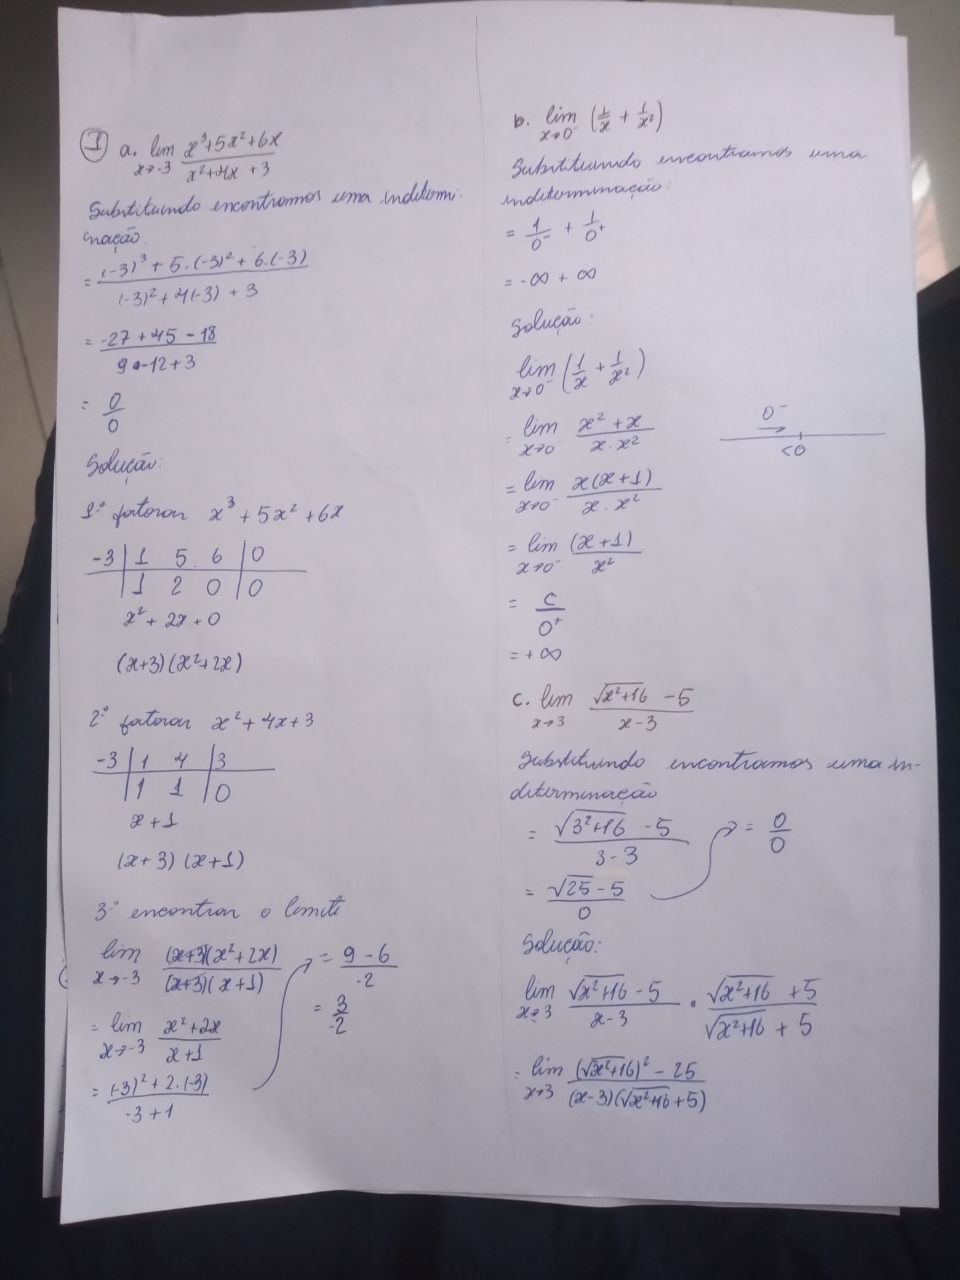 1 a. lim x→-3 (x³+5x²+6x)/(x²+4x+3)
Substituindo encontramos uma indetermi-
nação.
= ((-3)³ + 5.(-3)² + 6.(-3))/((-3)² + 4(-3) + 3)
= (-27 + 45 - 18)/(9 - 12 + 3)
= 0/0
Solução:
1º fatorar x³ + 5x² + 6x
-3 | 1 5 6 | 0
| 1 2 0 | 0
x² + 2x + 0
(x+3)(x²+2x)
2º fatorar x² + 4x + 3
-3 | 1 4 | 3
| 1 1 | 0
x + 1
(x+3) (x+1)
3º encontrar o limite
lim x→-3 ((x+3)(x²+2x))/((x+3)(x+1))
= lim x→-3 (x²+2x)/(x+1)
= ((-3)²+2.(-3))/(-3+1)
= (9-6)/-2
= 3/-2
b. lim x→0⁻ (1/x + 1/x²)
Substituindo encontramos uma
indeterminação:
= 1/0⁻ + 1/0⁺
= -∞ + ∞
Solução:
lim x→0⁻ (1/x + 1/x²)
= lim x→0⁻ (x² + x)/(x . x²)
0⁻ →
<0
= lim x→0⁻ (x(x+1))/(x . x²)
= lim x→0⁻ (x+1)/x²
= c/0⁺
= +∞
c. lim x→3 (√(x²+16) - 5)/(x-3)
Substituindo encontramos uma in-
determinação
= (√(3²+16) - 5)/(3-3)
= (√25 - 5)/0
= 0/0
Solução:
lim x→3 (√(x²+16) - 5)/(x-3) . (√(x²+16) + 5)/(√(x²+16) + 5)
= lim x→3 ((√(x²+16))² - 25)/((x-3)(√(x²+16) + 5))